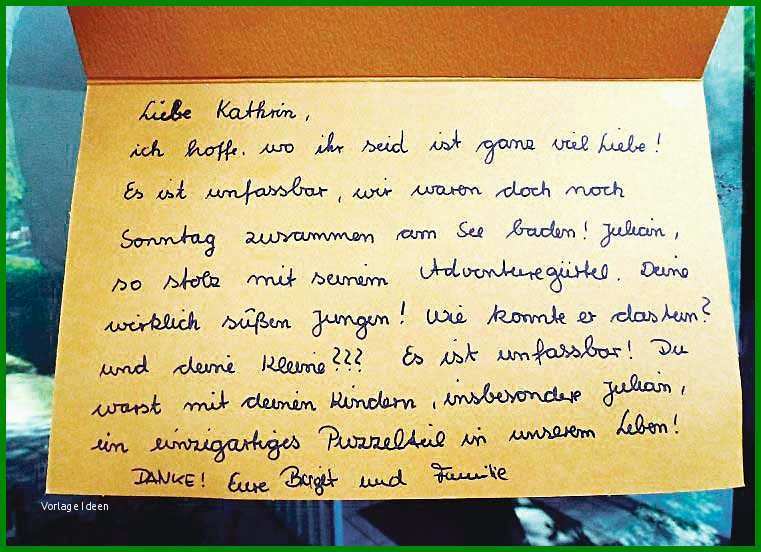 Liebe Kathrin,
ich hoffe. wo ihr seid ist ganz viel Liebe!
Es ist unfassbar, wir waren doch noch
Sonntag zusammen am See baden! Julian,
so stolz mit seinem Adventuregürtel. Deine
wirklich süßen Jungen! Wie konnte er das tun?
und deine Kleine??? Es ist unfassbar! Du
warst mit deinen Kindern, insbesondere Julian,
ein einzigartiges Puzzelteil in unserem Leben!
DANKE! Eure Birgit und Familie
Vorlage Ideen